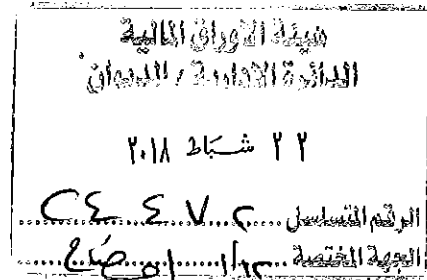 هيئة الأوراق المالية
الدائرة الإدارية / الديوان
٢٢ شباط ٢٠١٨
الرقم المتسلسل
الجهة المختصة